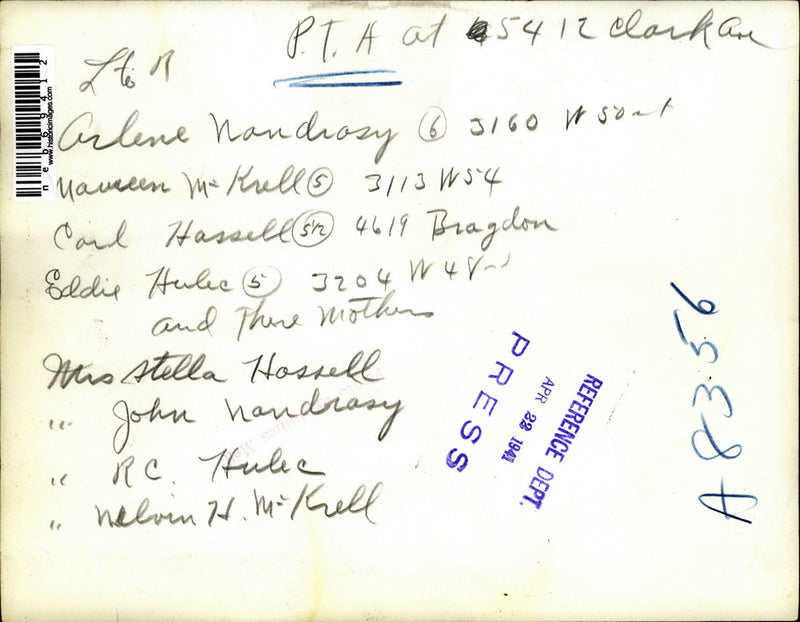 P.T.A at 5412 Clark Ave
L to R
Arlene Nandrasy 6 3160 W 50
Naureen Mc Krell 5 3113 W 54
Carl Hassell 5 1/2 4619 Bragdon
Eddie Hulec 5 3204 W 48
and There Mothers
Mrs Stella Hassell
" John Nandrasy
" R.C. Hulec
" Melvin H. Mc Krell
PRESS
APR 22 1941
REFERENCE DEPT.
A8356
www.historicimages.com
neb69412